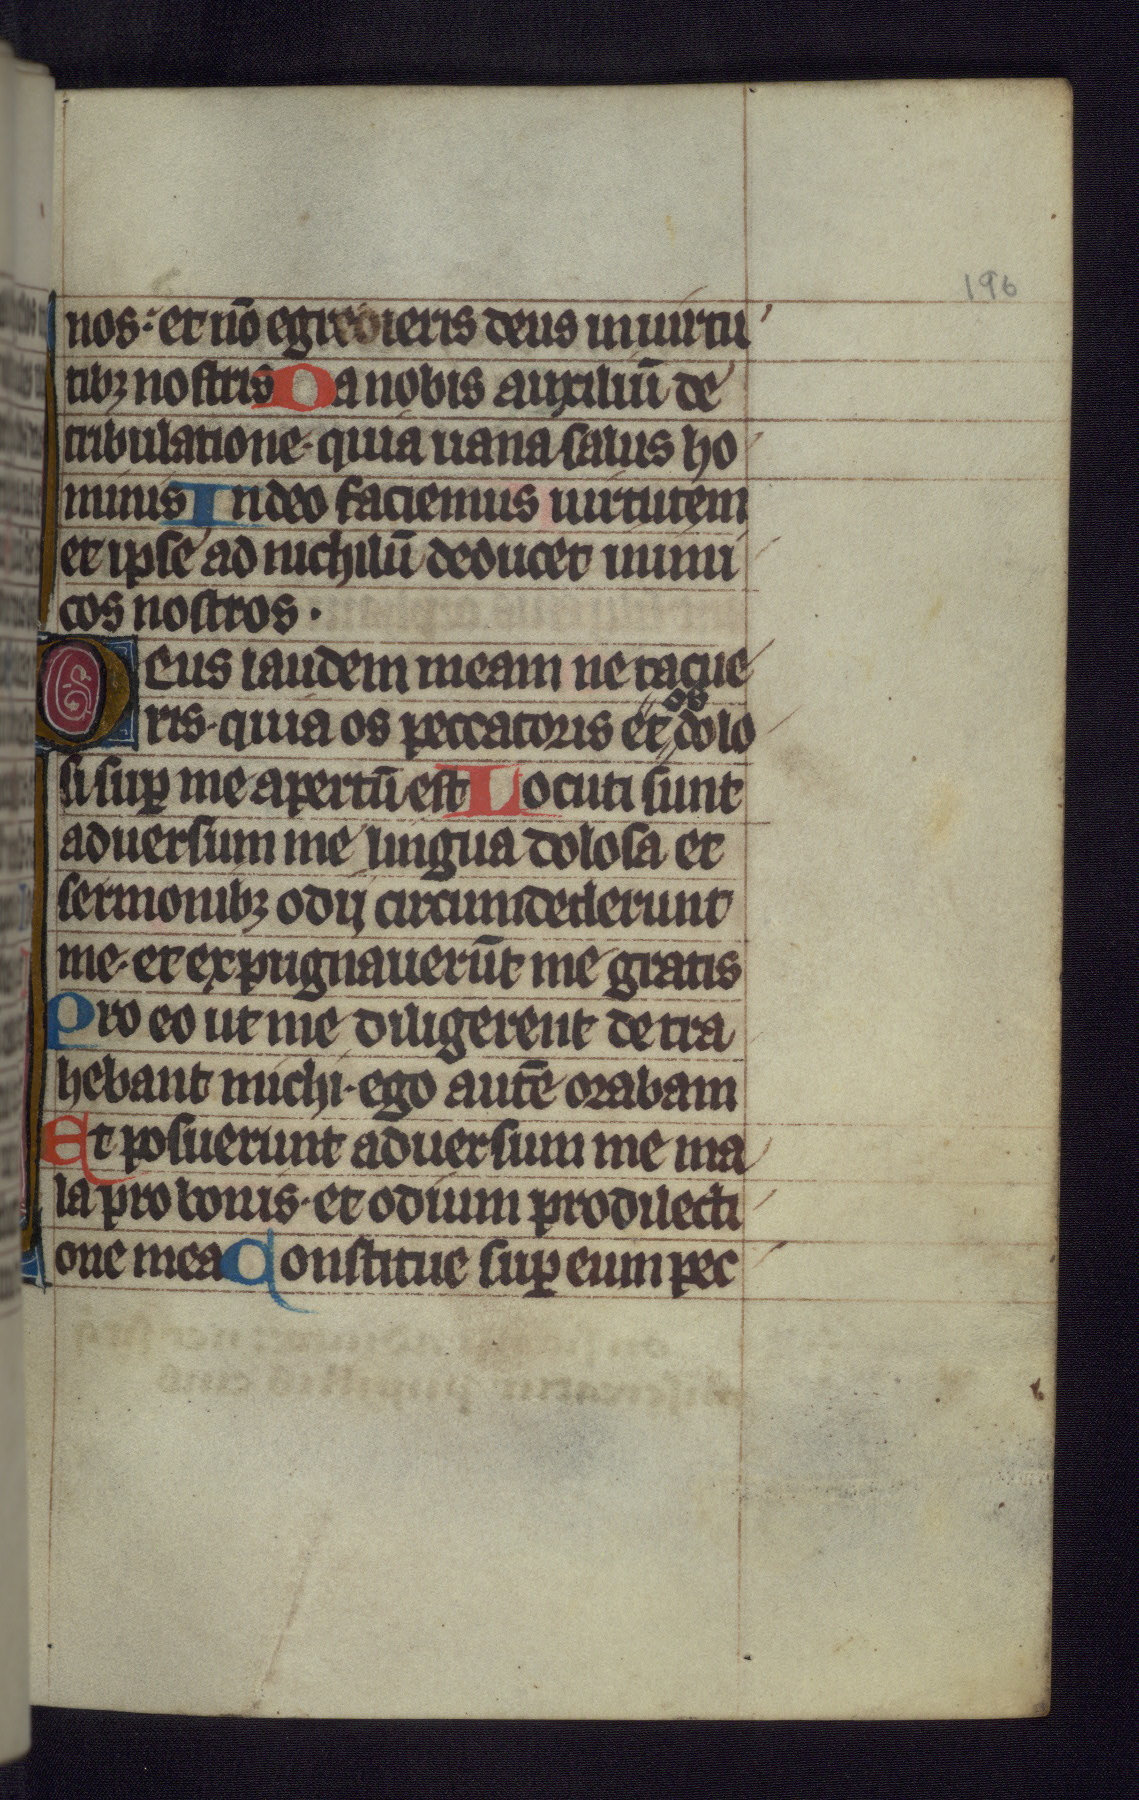 196
nos: et nō egredieris deus in uirtu
tibꝫ nostris Da nobis auxiliū de
tribulatione· quia uana salus ho
minis In deo faciemus uirtutem
et ipse ad nichilū deducet inimi
cos nostros·
Deus laudem meam ne tacue
ris· quia os peccatoris et os dolo
si suꝑ me apertū est Locuti sunt
aduersum me lingua dolosa et
sermonibꝫ odij circumdederunt
me· et expugnauerūt me gratis
Pro eo ut me diligerent detra
hebant michi· ego autē orabam
Et posuerunt aduersum me ma
la pro bonis· et odium pro dilecti
one mea Constitue suꝑ eum pec